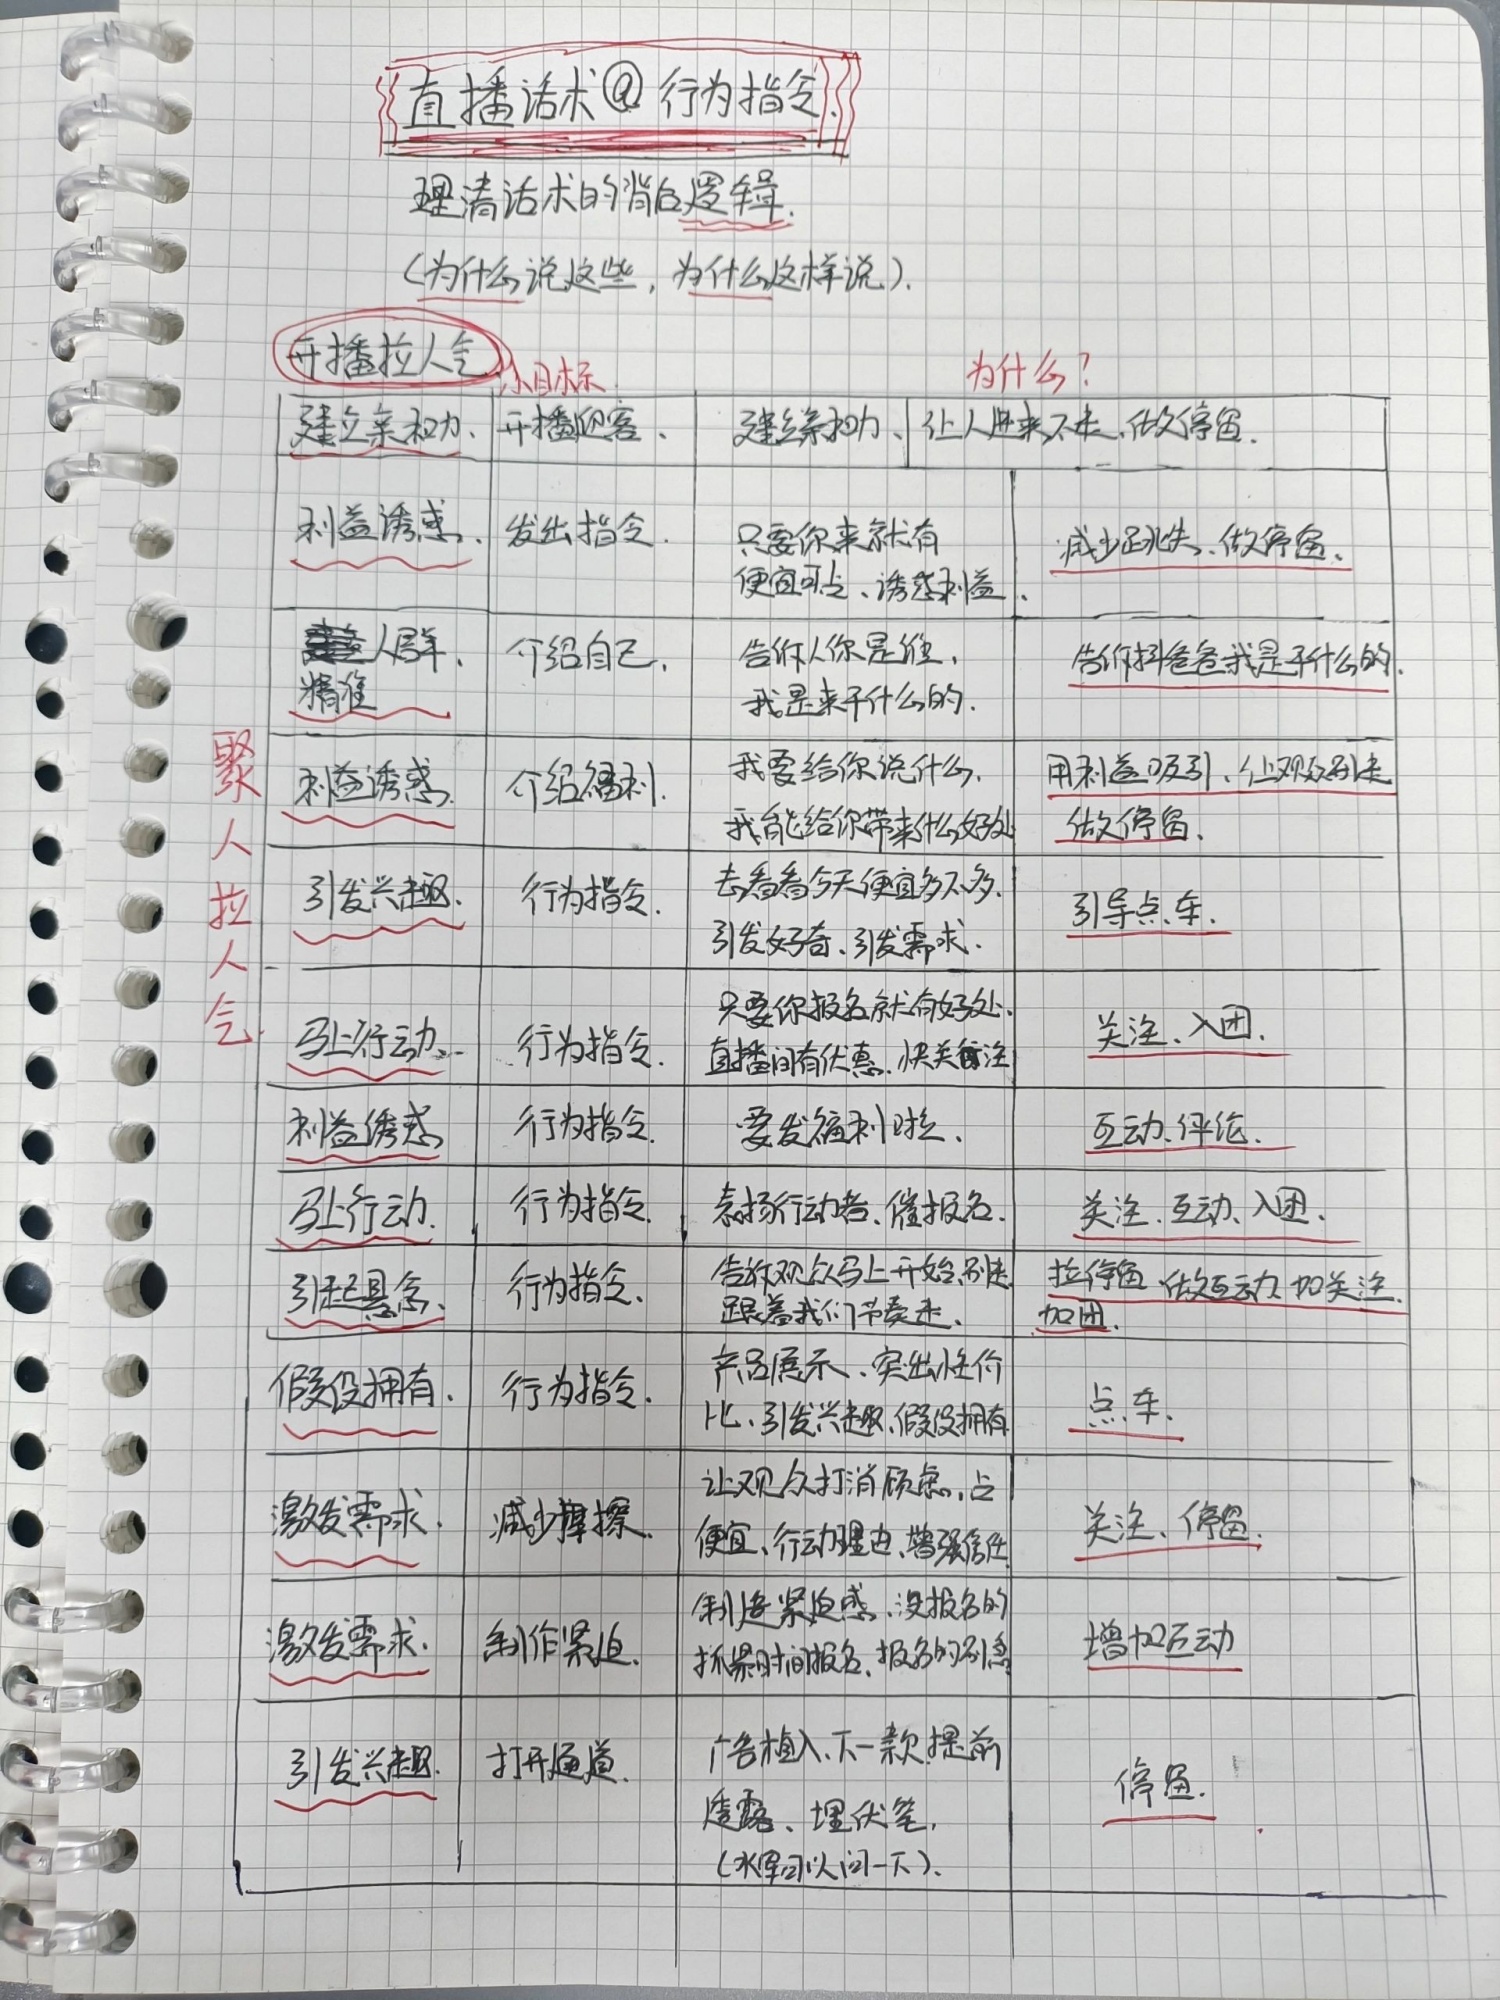 直播话术@行为指令.
理清话术的背后逻辑.
(为什么说这些,为什么这样说).
开播拉人气
小目标.
为什么?
聚人拉人气.
建立亲和力. 开播迎客. 建立亲和力、 让人进来不走、做停留.
利益诱惑. 发出指令. 只要你来就有 减少跳失、做停留.
便宜可占、诱惑利益.
人群. 介绍自己. 告诉人你是谁, 告诉抖爸爸我是干什么的.
精准 我是来干什么的.
利益诱惑. 介绍福利. 我要给你说什么, 用利益吸引、让观众别走
我能给你带来什么好处 做停留.
引发兴趣. 行为指令. 去看看今天便宜多不多. 引导点车.
引发好奇、引发需求.
马上行动. 行为指令. 只要你报名就有好处. 关注、入团.
直播间有优惠、快关注
利益诱惑 行为指令. 要发福利啦. 互动、评论.
马上行动. 行为指令. 表扬行动者、催报名. 关注、互动、入团.
引起悬念. 行为指令. 告诉观众马上开始,别走 拉停留、做互动、加关注.
跟着我们节奏走. 加团.
假设拥有. 行为指令. 产品展示、突出性价 点车.
比、引发兴趣、假设拥有
激发需求. 减少摩擦. 让观众打消顾虑、占 关注、停留.
便宜、行动理由、增强信任
激发需求. 制作紧迫. 制造紧迫感、没报名的 增加互动
抓紧时间报名、报名的别急
引发兴趣. 打开通道. 广告植入、下一款提前 停留.
透露、埋伏笔,
(水军可以问一下).